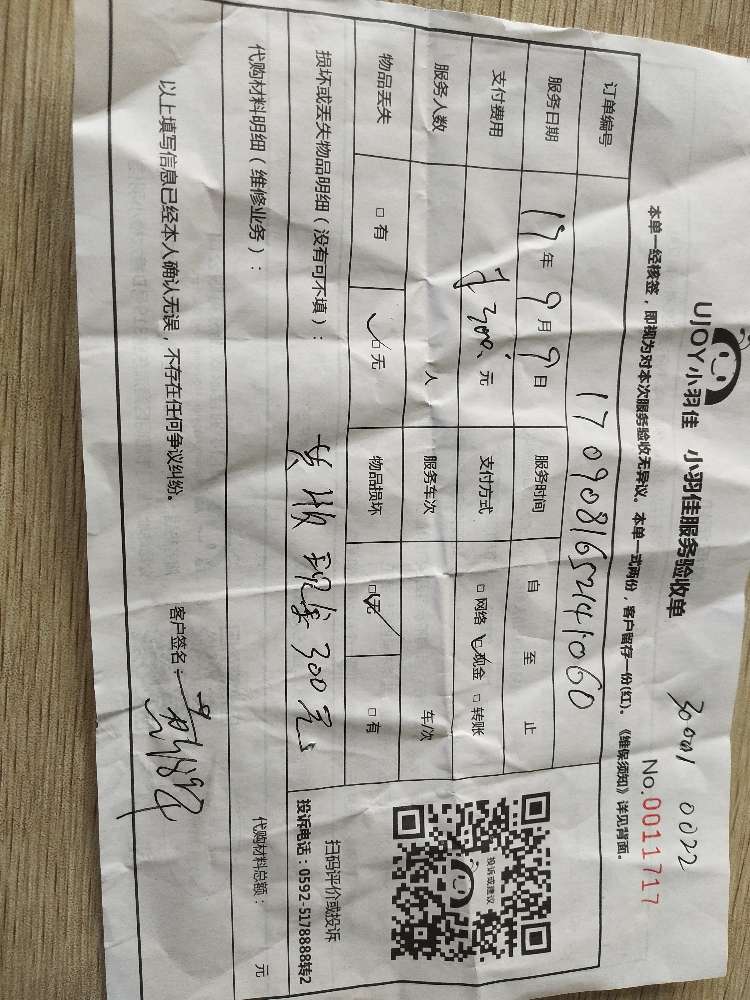 30001 0022
UJOY小羽佳 小羽佳服务验收单
No.0011717
本单一经核签，即视为对本次服务验收无异议。本单一式两份，客户留存一份(红)。《维保须知》详见背面。
订单编号 1709081652141060
服务日期 17年9月9日 服务时间 自 至 止
支付费用 300 元 支付方式 □网络 ☑现金 □转账
服务人数 人 服务车次 车/次
物品丢失 □有 ☑无 物品损坏 ☑无 □有
损坏或丢失物品明细（没有可不填）： 现金300元
投诉或建议
扫码评价或投诉
投诉电话：0592-5178888转2
代购材料明细（维修业务）： 代购材料总额： 元
以上填写信息已经本人确认无误，不存在任何争议纠纷。 客户签名：